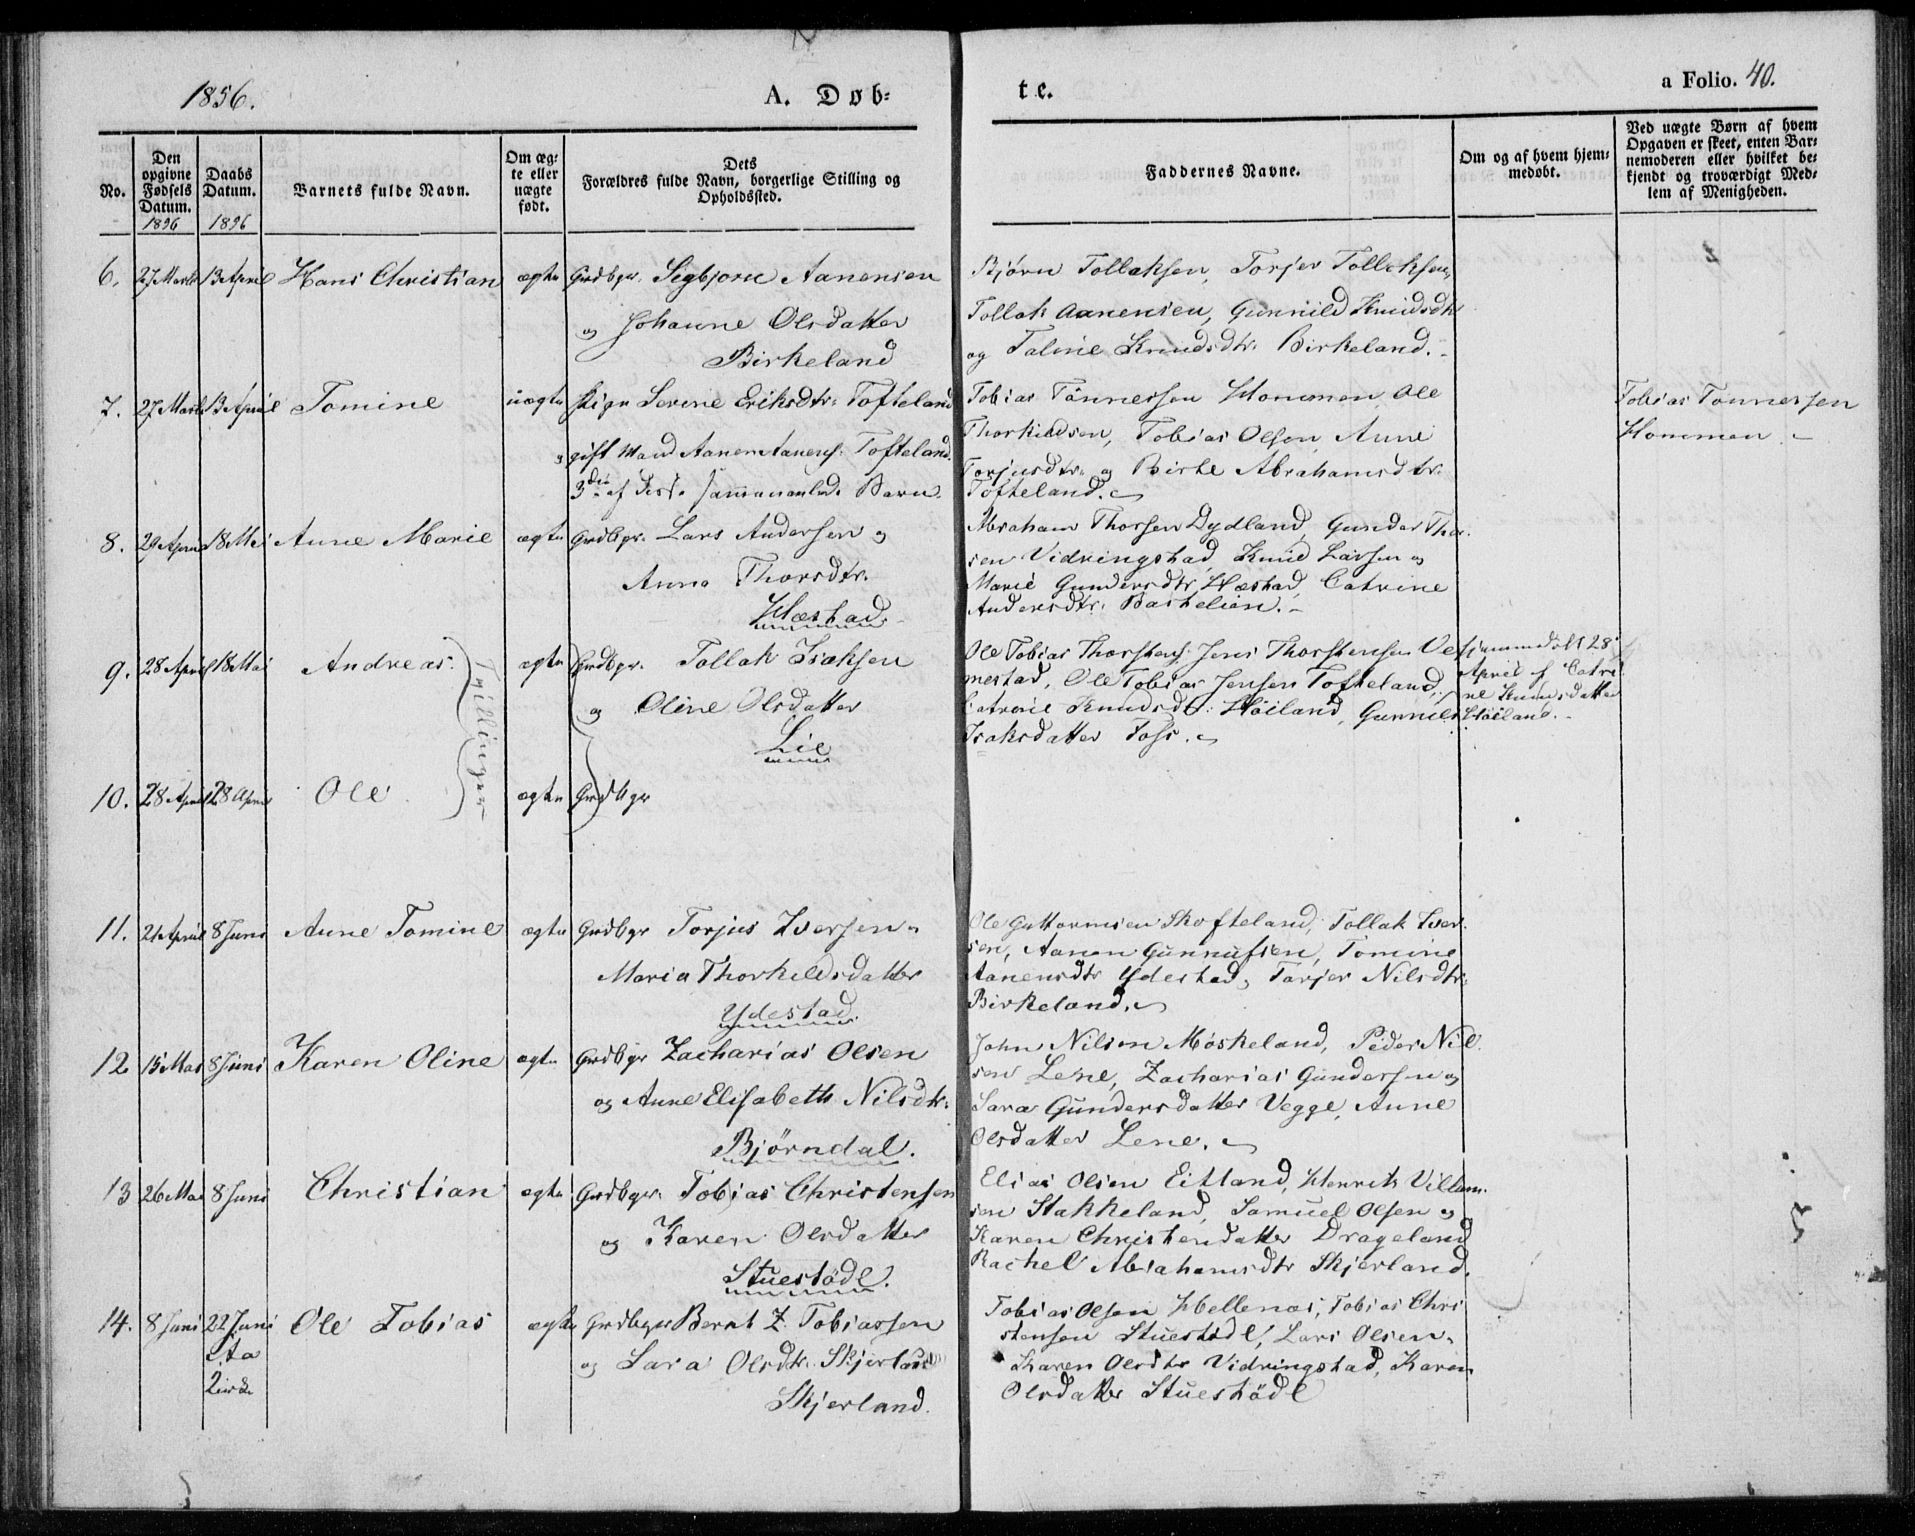 1856.
A. Døb-
te.
a Folio. 40.
No.
Den opgivne Fødsels Datum.
1856
Daabs Datum.
1856
Barnets fulde Navn.
Om ægte eller uægte født.
Dets
Forældres fulde Navn, borgerlige Stilling og
Opholdssted.
Faddernes Navne.
Om og af hvem hjem-
medøbt.
Ved uægte Børn af hvem
Opgaven er skeet, enten Bar-
nemoderen eller hvilket be-
kjendt og troværdigt Med-
lem af Menigheden.
6. 27 Marts 13 April Hans Christian ægte Grdbgr. Sigbjørn Aanensen
og Johanne Olsdatter
Birkeland
Bjørn Tollaksen, Torjer Tollaksen,
Tollak Aanensen, Gunnild Knudsdtr
og Taline Knudsdtr. Birkeland.
7. 27 Marts 13 April Tomine uægte Pige Serine Eriksdtr. Tofteland
gift Mand Aanen Aanens. Tofteland.
3die af Barn.
Tobias Tønnessen Hommen, Ole
Thorkildsen, Tobias Olsen, Anne
Torjusdtr. og Birte Abrahamsdtr.
Tofteland.
Tobias Tønnessen
Hommen.
8. 29 April 18 Mai Anne Marie ægte Grdbgr. Lars Andersen og
Anna Thorsdtr.
Hæstad.
Abraham Thorsen Dydland, Gunder Thor-
sen Vidringstad, Knud Larsen og
Marie Gundersdtr. Hæstad, Catrine
Andersdtr. Baskelien.
9. 28 April 18 Mai Andreas. ægte Grdbgr. Tollak Isaksen
og Oline Olsdatter
Lie
Tvillinger
Ole Tobias Thorstens. Jens Thorstensen Ve-
mestad, Ole Tobias Jensen Tofteland,
Catrine Knudsdtr. Høiland, Gunnild
Isaksdatter Foss.
hjemmedøbt 28
April af Catri-
ne Knudsdatter
Høiland.
10. 28 April 28 April Ole ægte Grdbgr
11. 21 April 8 Juni Anne Tomine ægte Grdbgr Torjus Iversen
Maria Thorkildsdatter
Ydestad.
Ole Guttormsen Skofteland, Tollak Iver-
sen, Aanen Gunnufsen, Tomine
Aanensdtr Ydestad, Tarjer Nilsdtr.
Birkeland.
12 15 Mai 8 Juni Karen Oline ægte Grdbgr Zacharias Olsen
og Anne Elisabeth Nilsdtr.
Bjørndal.
John Nilsen Møskeland, Peder Niel-
sen Lene, Zacharias Gundersen og
Sara Gundersdatter Vegge, Anne
Olsdatter Lene.
13 26 Mai 8 Juni Christian ægte Grdbgr. Tobias Christensen
og Karen Olsdatter
Stuestødl.
Elias Olsen Eitland, Henrik Villum-
sen Stakkeland, Samuel Olsen og
Karen Christendatter Drageland
Rachel Abrahamsdtr Skjerland.
14. 8 Juni 22 Juni Ole Tobias ægte Grdbgr Bernt Z. Tobiassen
og Sara Olsdtr. Skjerland
Skjerland.
Tobias Olsen Hellenæs, Tobias Chri-
stensen Stuestødl, Lars Olsen,
Karen Olsdtr Vidringstad, Karen
Olsdatter Stuestødl